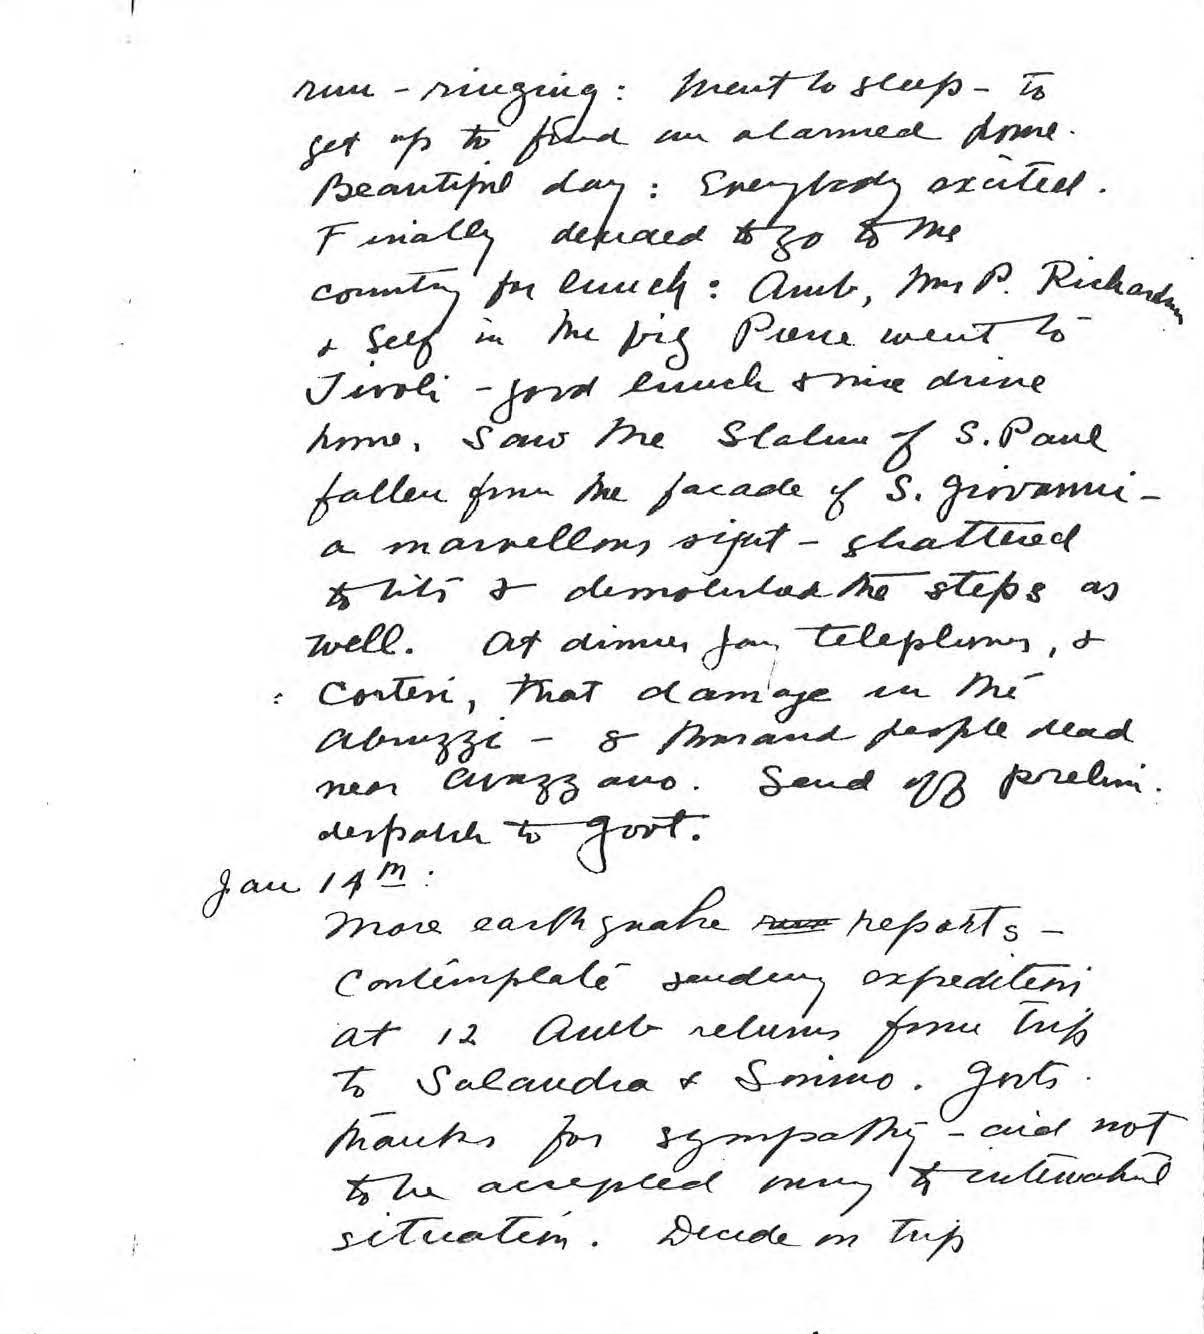 run - ringing: Went to sleep - to
get up to find an alarmed home.
Beautiful day: Everybody excited.
Finally decided to go to the
country for lunch: Amb, Mrs P. Richardson
& Self in the big Pierce went to
Tivoli - good lunch & nice drive
home. Saw the Statue of S. Paul
fallen from the facade of S. Giovanni -
a marvellous sight - shattered
to bits & demolished the steps as
well. At dinner Jay telephones, &
: Cortesi, that damage in the
Abruzzi - 8 thousand people dead
near Avazzano. Send off prelim.
despatch to Govt.
Jan 14th:
More earthquake reports -
Contemplate sending expedition
at 12 Amb returns from trip
to Salandra & Sonino. Govts.
thanks for sympathy - aid not
to be accepted owing to internatnl
situation. Decide on trip